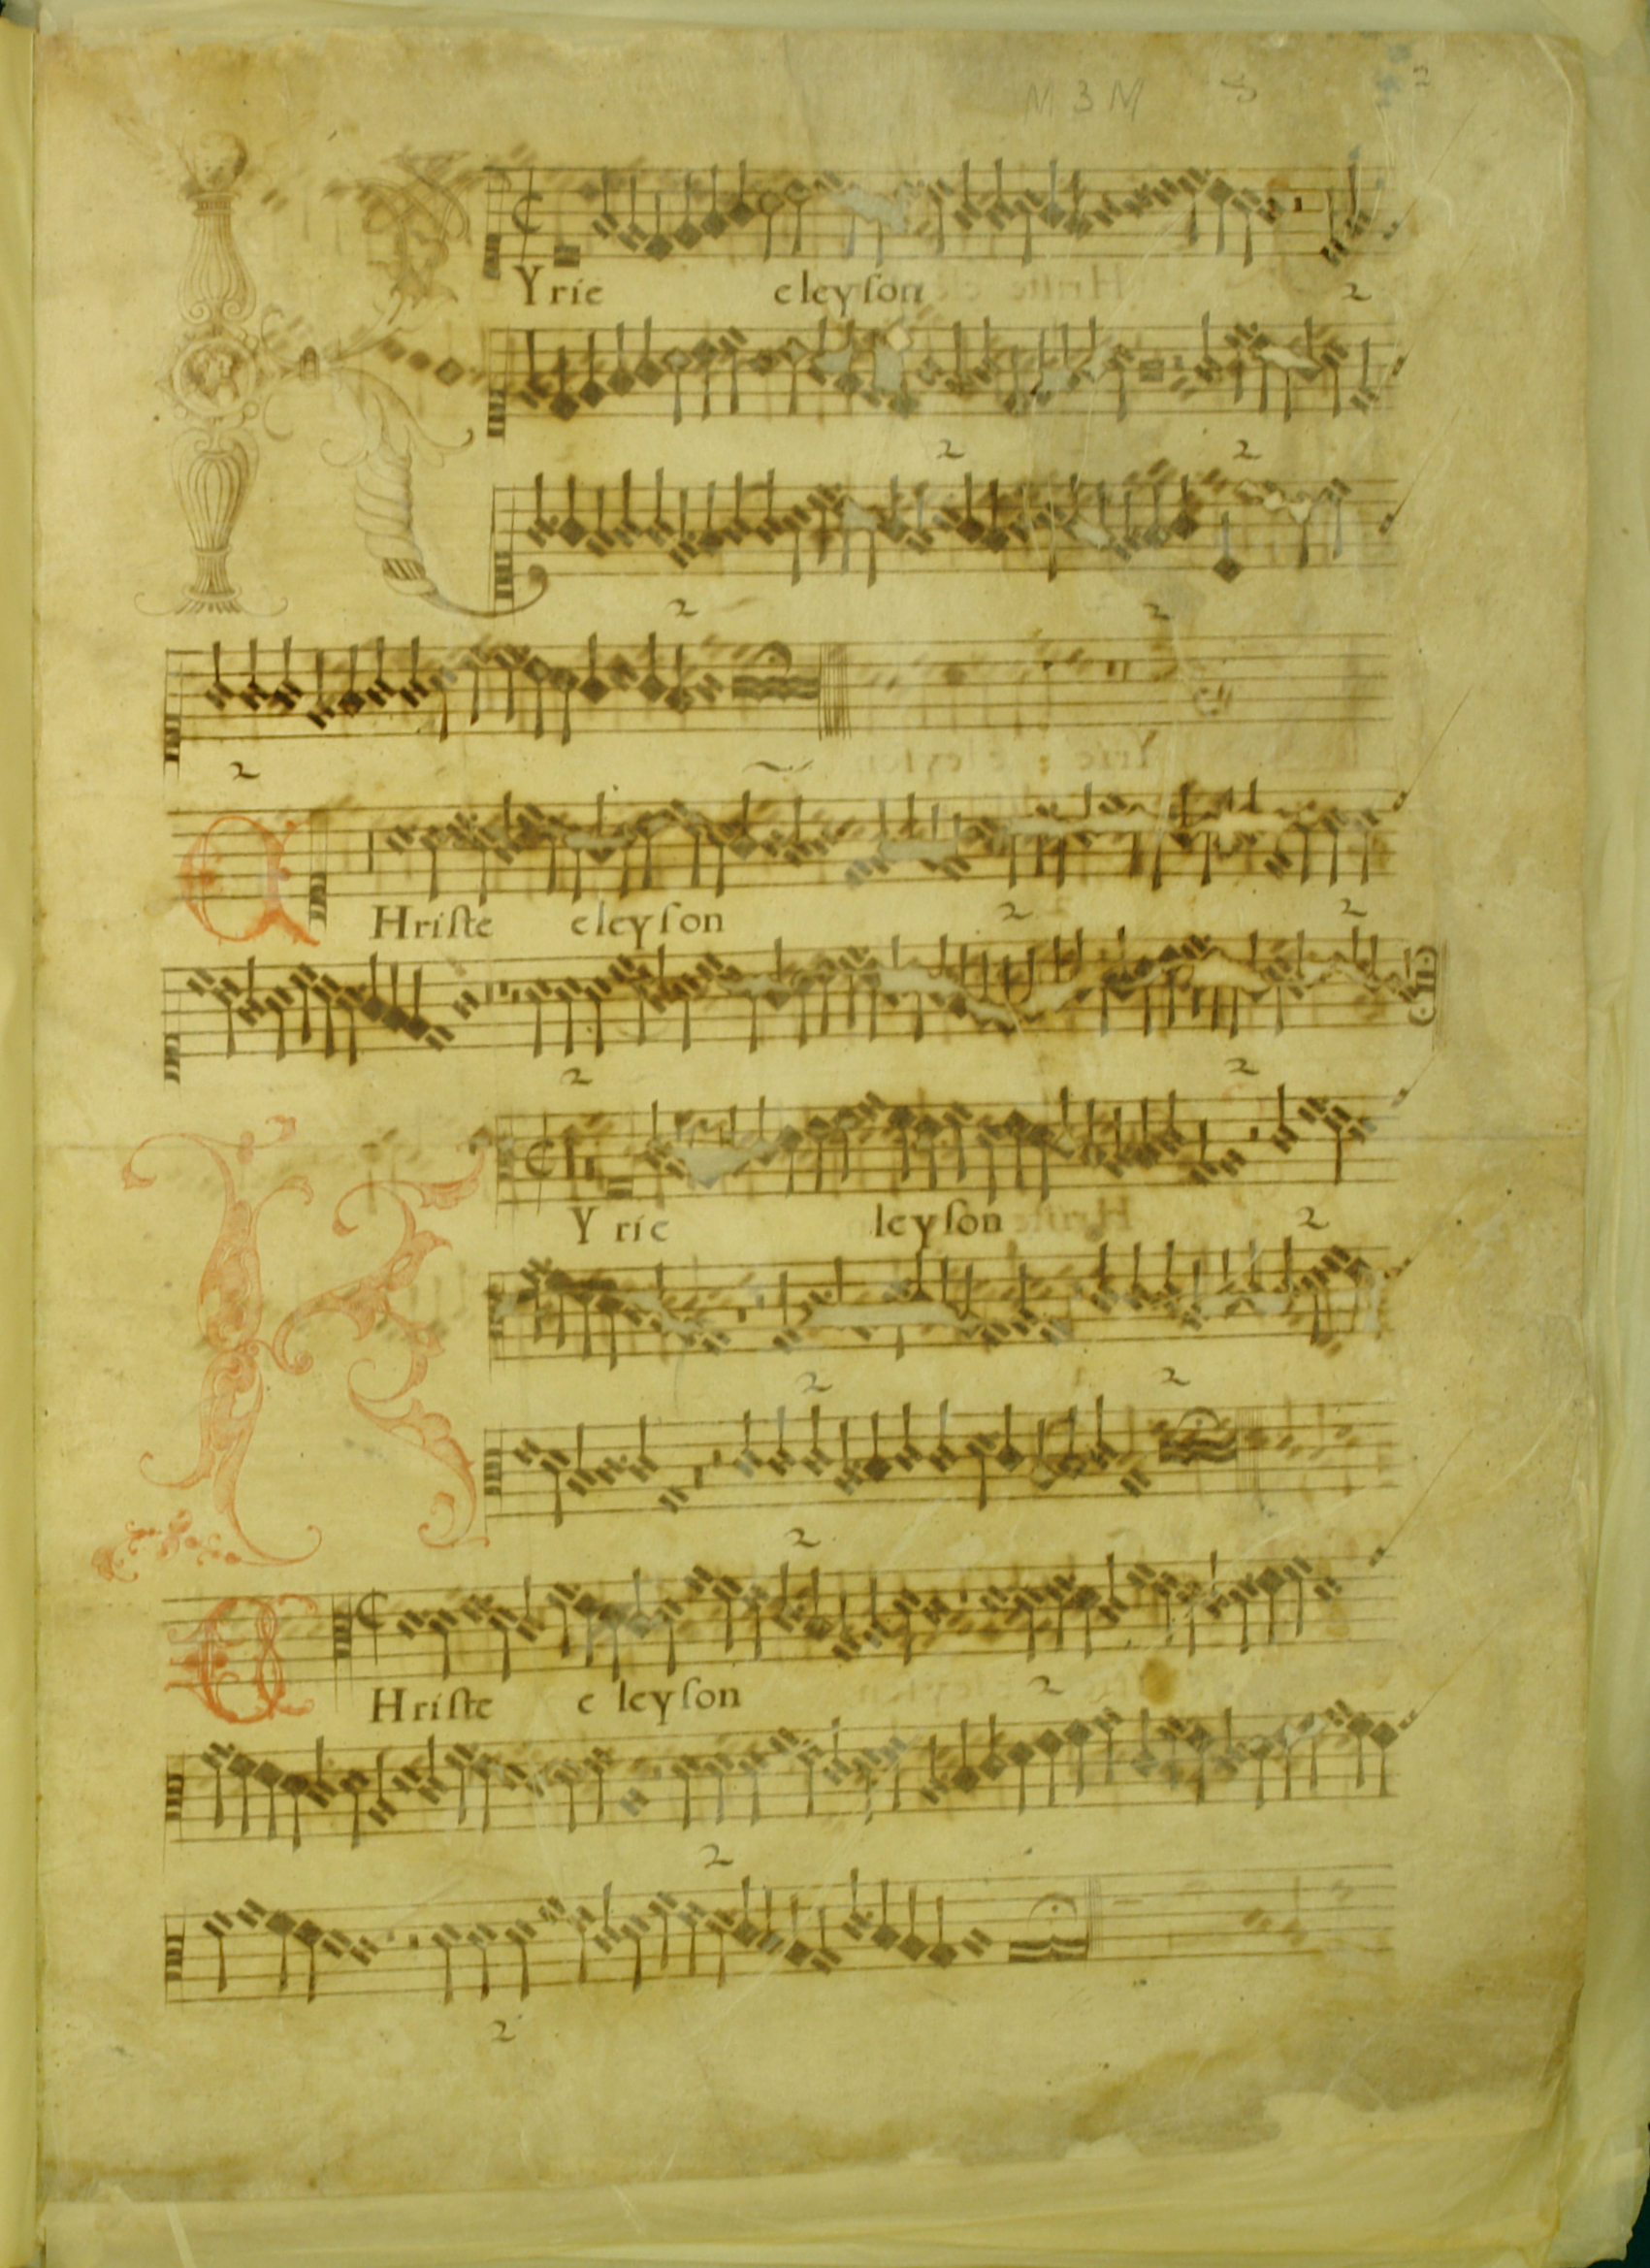 M 3 M
Yrie eleyson
2
2 2
2 2
2
Hriste eleyson
2 2
2 2
Yrie leyson
2
2 2
2
Hriste e leyson
2
2
2